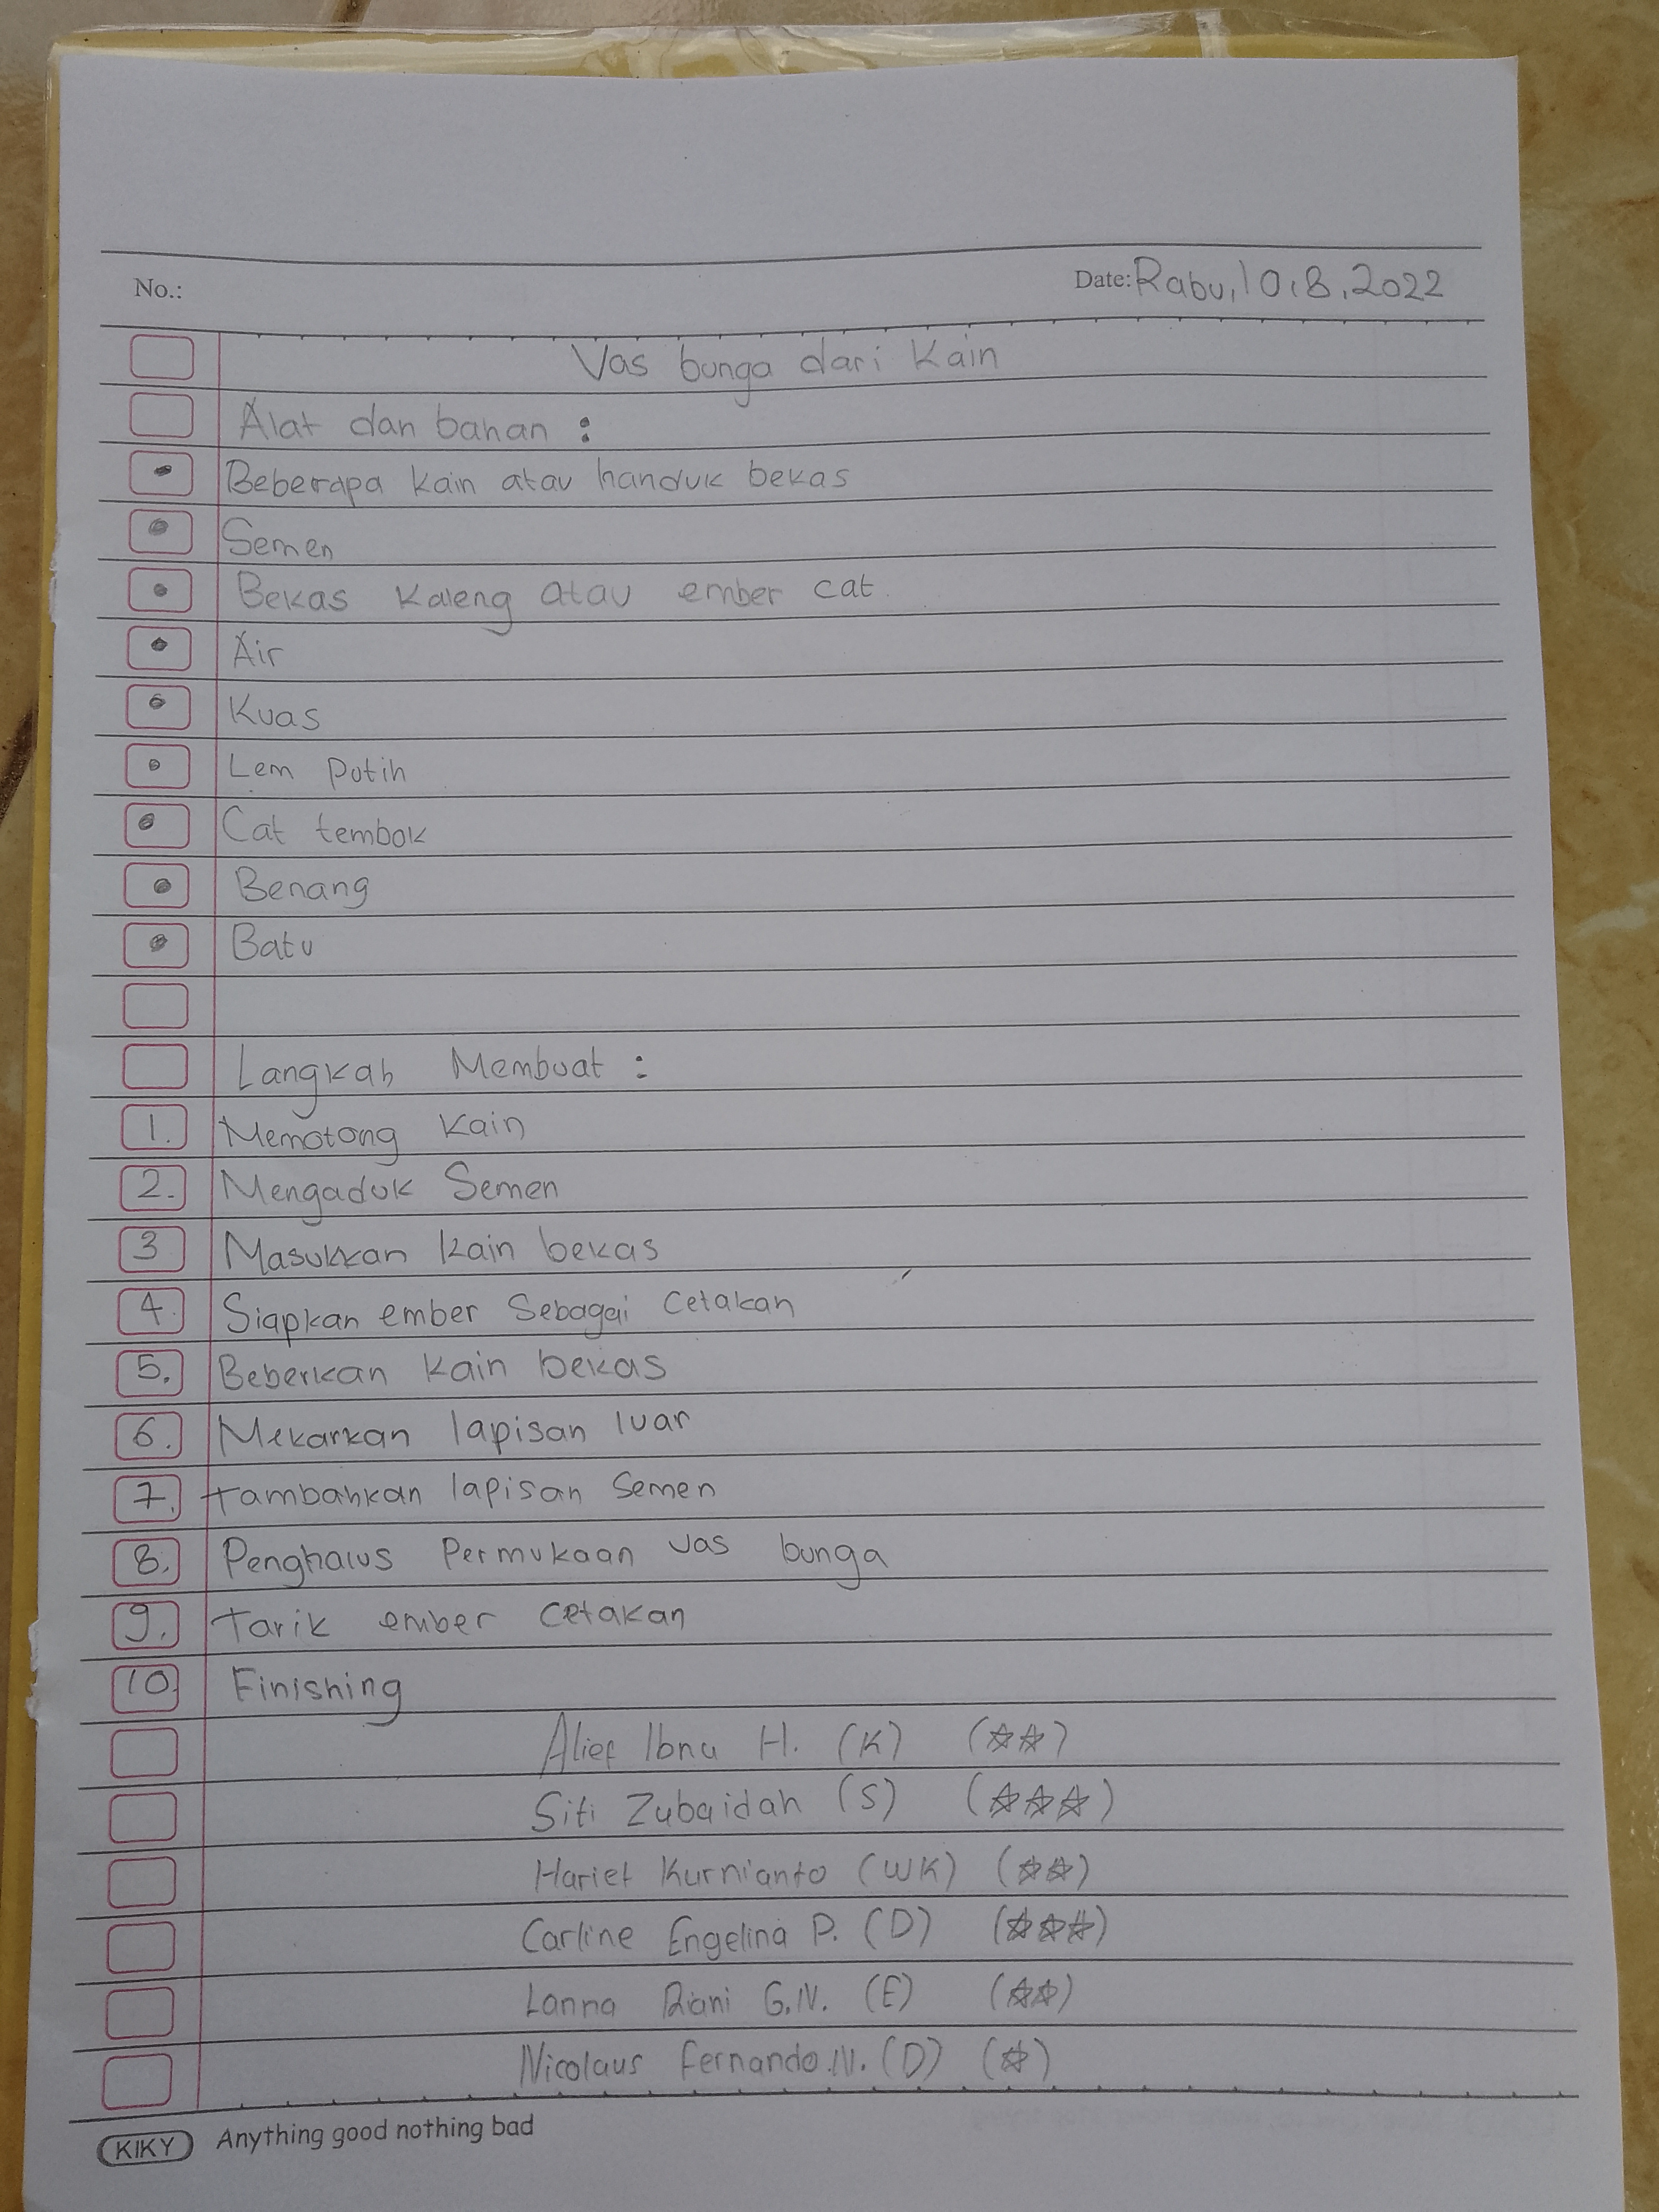 No.:
Date: Rabu, 10, 8, 2022
Vas bunga dari Kain
Alat dan bahan :
• Beberapa kain atau handuk bekas
• Semen
• Bekas Kaleng atau ember cat
• Air
• Kuas
• Lem Putih
• Cat tembok
• Benang
• Batu
Langkah Membuat :
1. Memotong Kain
2. Mengaduk Semen
3 Masukkan kain bekas
4. Siapkan ember Sebagai Cetakan
5. Beberkan Kain bekas
6. Mekarkan lapisan luar
7. tambahkan lapisan Semen
8. Penghalus Permukaan vas bunga
9. Tarik ember Cetakan
10. Finishing
Alief Ibnu H. (K) (☆☆)
Siti Zubaidah (S) (☆☆☆)
Hariet Kurnianto (WK) (☆☆)
Carline Engelina P. (D) (☆☆☆)
Lanna Riani G.N. (E) (☆☆)
Nicolaus Fernando.N. (D) (☆)
KIKY Anything good nothing bad